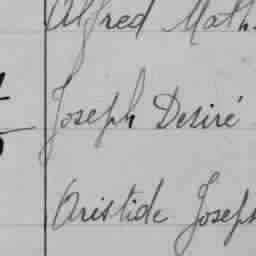 Alfred Math
Joseph Desiré
Aristide Joseph